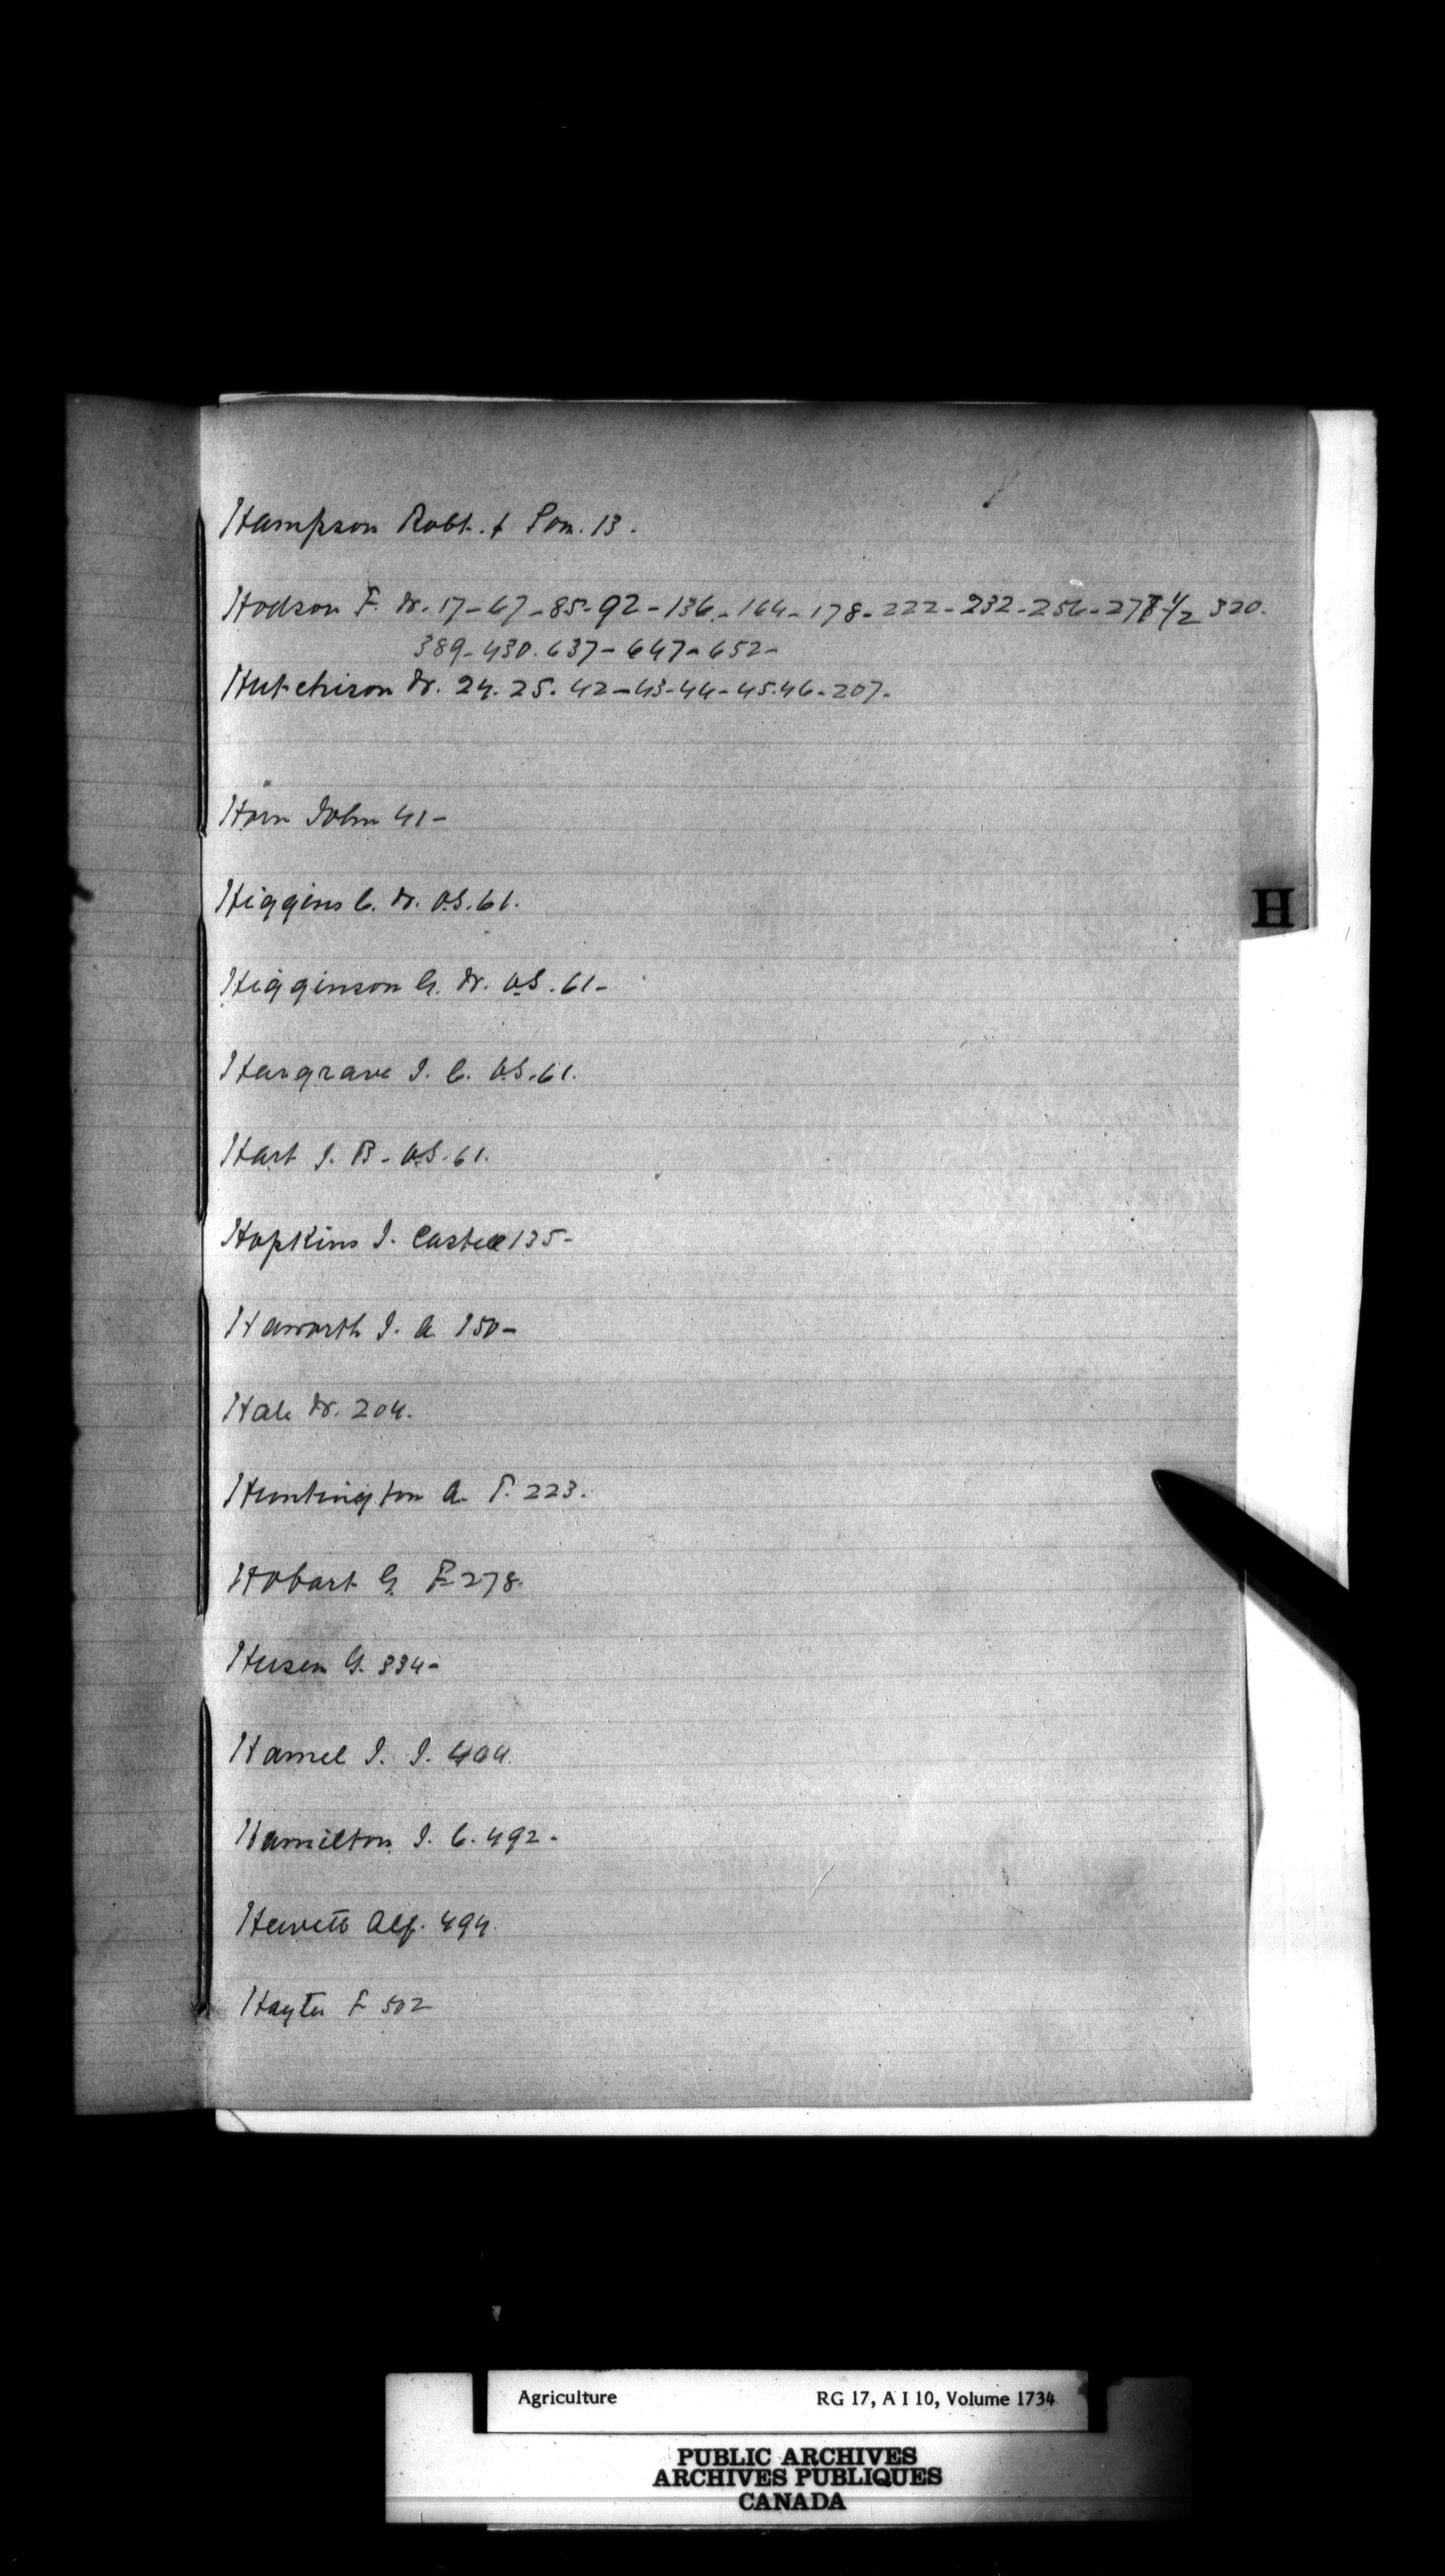 Hampson Robt. & Son. 13.
Hodson F. Dr. 17-67-85-92-136-164-178-222-232-256-278½ 320.
389-430. 637-647-652-
Hutchison Dr. 24. 25. 42-43-44-45.46-207.
Horn John 41-
H
Higgins C. Dr. O.S. 61.
Higginson G. Dr. O.S. 61-
Hargrave J. C. O.S. 61.
Hart J. B. O.S. 61.
Hopkins J. Castell 135-
Haworth J. A. 150-
Hale Dr. 204.
Huntington A. T. 223.
Hobart G. F. 278.
Husen G. 334-
Hamel J. J. 404.
Hamilton J. C. 492-
Hewett Alf. 494.
Hayter F 502
Agriculture RG 17, A I 10, Volume 1734
PUBLIC ARCHIVES
ARCHIVES PUBLIQUES
CANADA